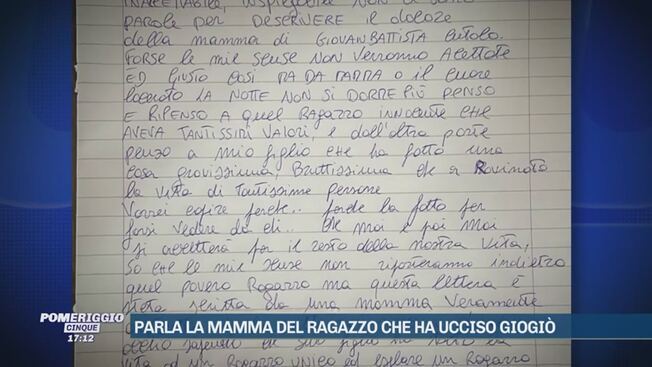 INACCETTABILE, INSPIEGABILE NON CI SONO
PAROLE per DESCRIVERE il dolore
della mamma di GIOVANBATTISTA Cutolo.
FORSE le mie scuse NON Verranno Accettate
ED GIUSTO COSÌ MA DA MAMMA o il cuore
lacerato LA NOTTE NON SI DORME PIÙ PENSO
E RIPENSO A quel RAGAZZO INNOCENTE CHE
AVEVA TANTISSIMI VALORI, e dall'altra parte
penso a mio figlio che ha fatto una
cosa gravissima, Bruttissima che a Rovinato
la vita di tantissime persone
Vorrei capire perché.. perché ha fatto
farsi vedere da chi.. che mai e poi mai
si accetterà per il resto della nostra vita,
So che le mie scuse non riporteranno indietro
quel povero Ragazzo ma questa lettera è
stata scritta da una mamma Veramente
vita ad un Ragazzo UNICO ed un Ragazzo
POMERIGGIO
CINQUE
17:12
PARLA LA MAMMA DEL RAGAZZO CHE HA UCCISO GIOGIÒ